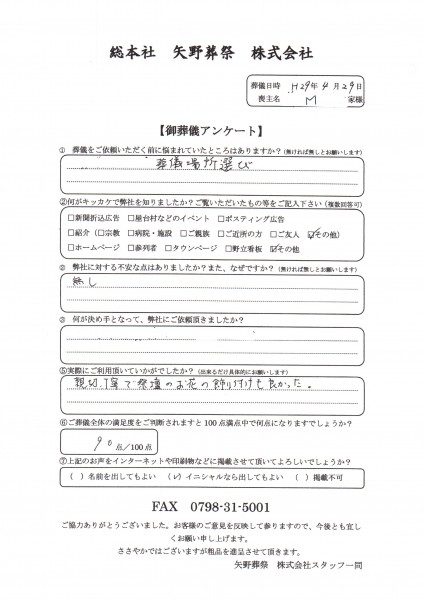 総本社 矢野葬祭 株式会社
葬儀日時 H29年4月29日
喪主名 M 家様
【御葬儀アンケート】
① 葬儀をご依頼いただく前に悩まれていたところはありますか?(無ければ無しとお願いします)
葬儀場所選び
②何がキッカケで弊社を知りましたか?ご覧いただいたもの等をご記入下さい(複数回答可)
□新聞折込広告 □屋台村などのイベント □ポスティング広告
□紹介(□宗教 □病院・施設 □ご親族 □ご近所の方 □ご友人 ☑その他)
□ホームページ □参列者 □タウンページ □野立看板 ☑その他
② 弊社に対する不安な点はありましたか?また、なぜですか?(無ければ無しとお願いします)
無し
③ 何が決め手となって、弊社にご依頼頂きましたか?
⑤実際にご利用頂いていかがでしたか?(出来るだけ具体的にお願いします)
親切、丁寧で祭壇のお花の飾り付けも良かった。
⑥ご葬儀全体の満足度をご判断されますと100点満点中で何点になりますでしょうか?
90点/100点
⑦上記のお声をインターネットや印刷物などに掲載させて頂いてよろしいでしょうか?
( )名前を出してもよい (✓)イニシャルなら出してもよい ( )掲載不可
FAX 0798-31-5001
ご協力ありがとうございました。お客様のご意見を反映して参りますので、今後とも宜し
くお願い申し上げます。
ささやかではございますが粗品を進呈させて頂きます。
矢野葬祭 株式会社スタッフ一同